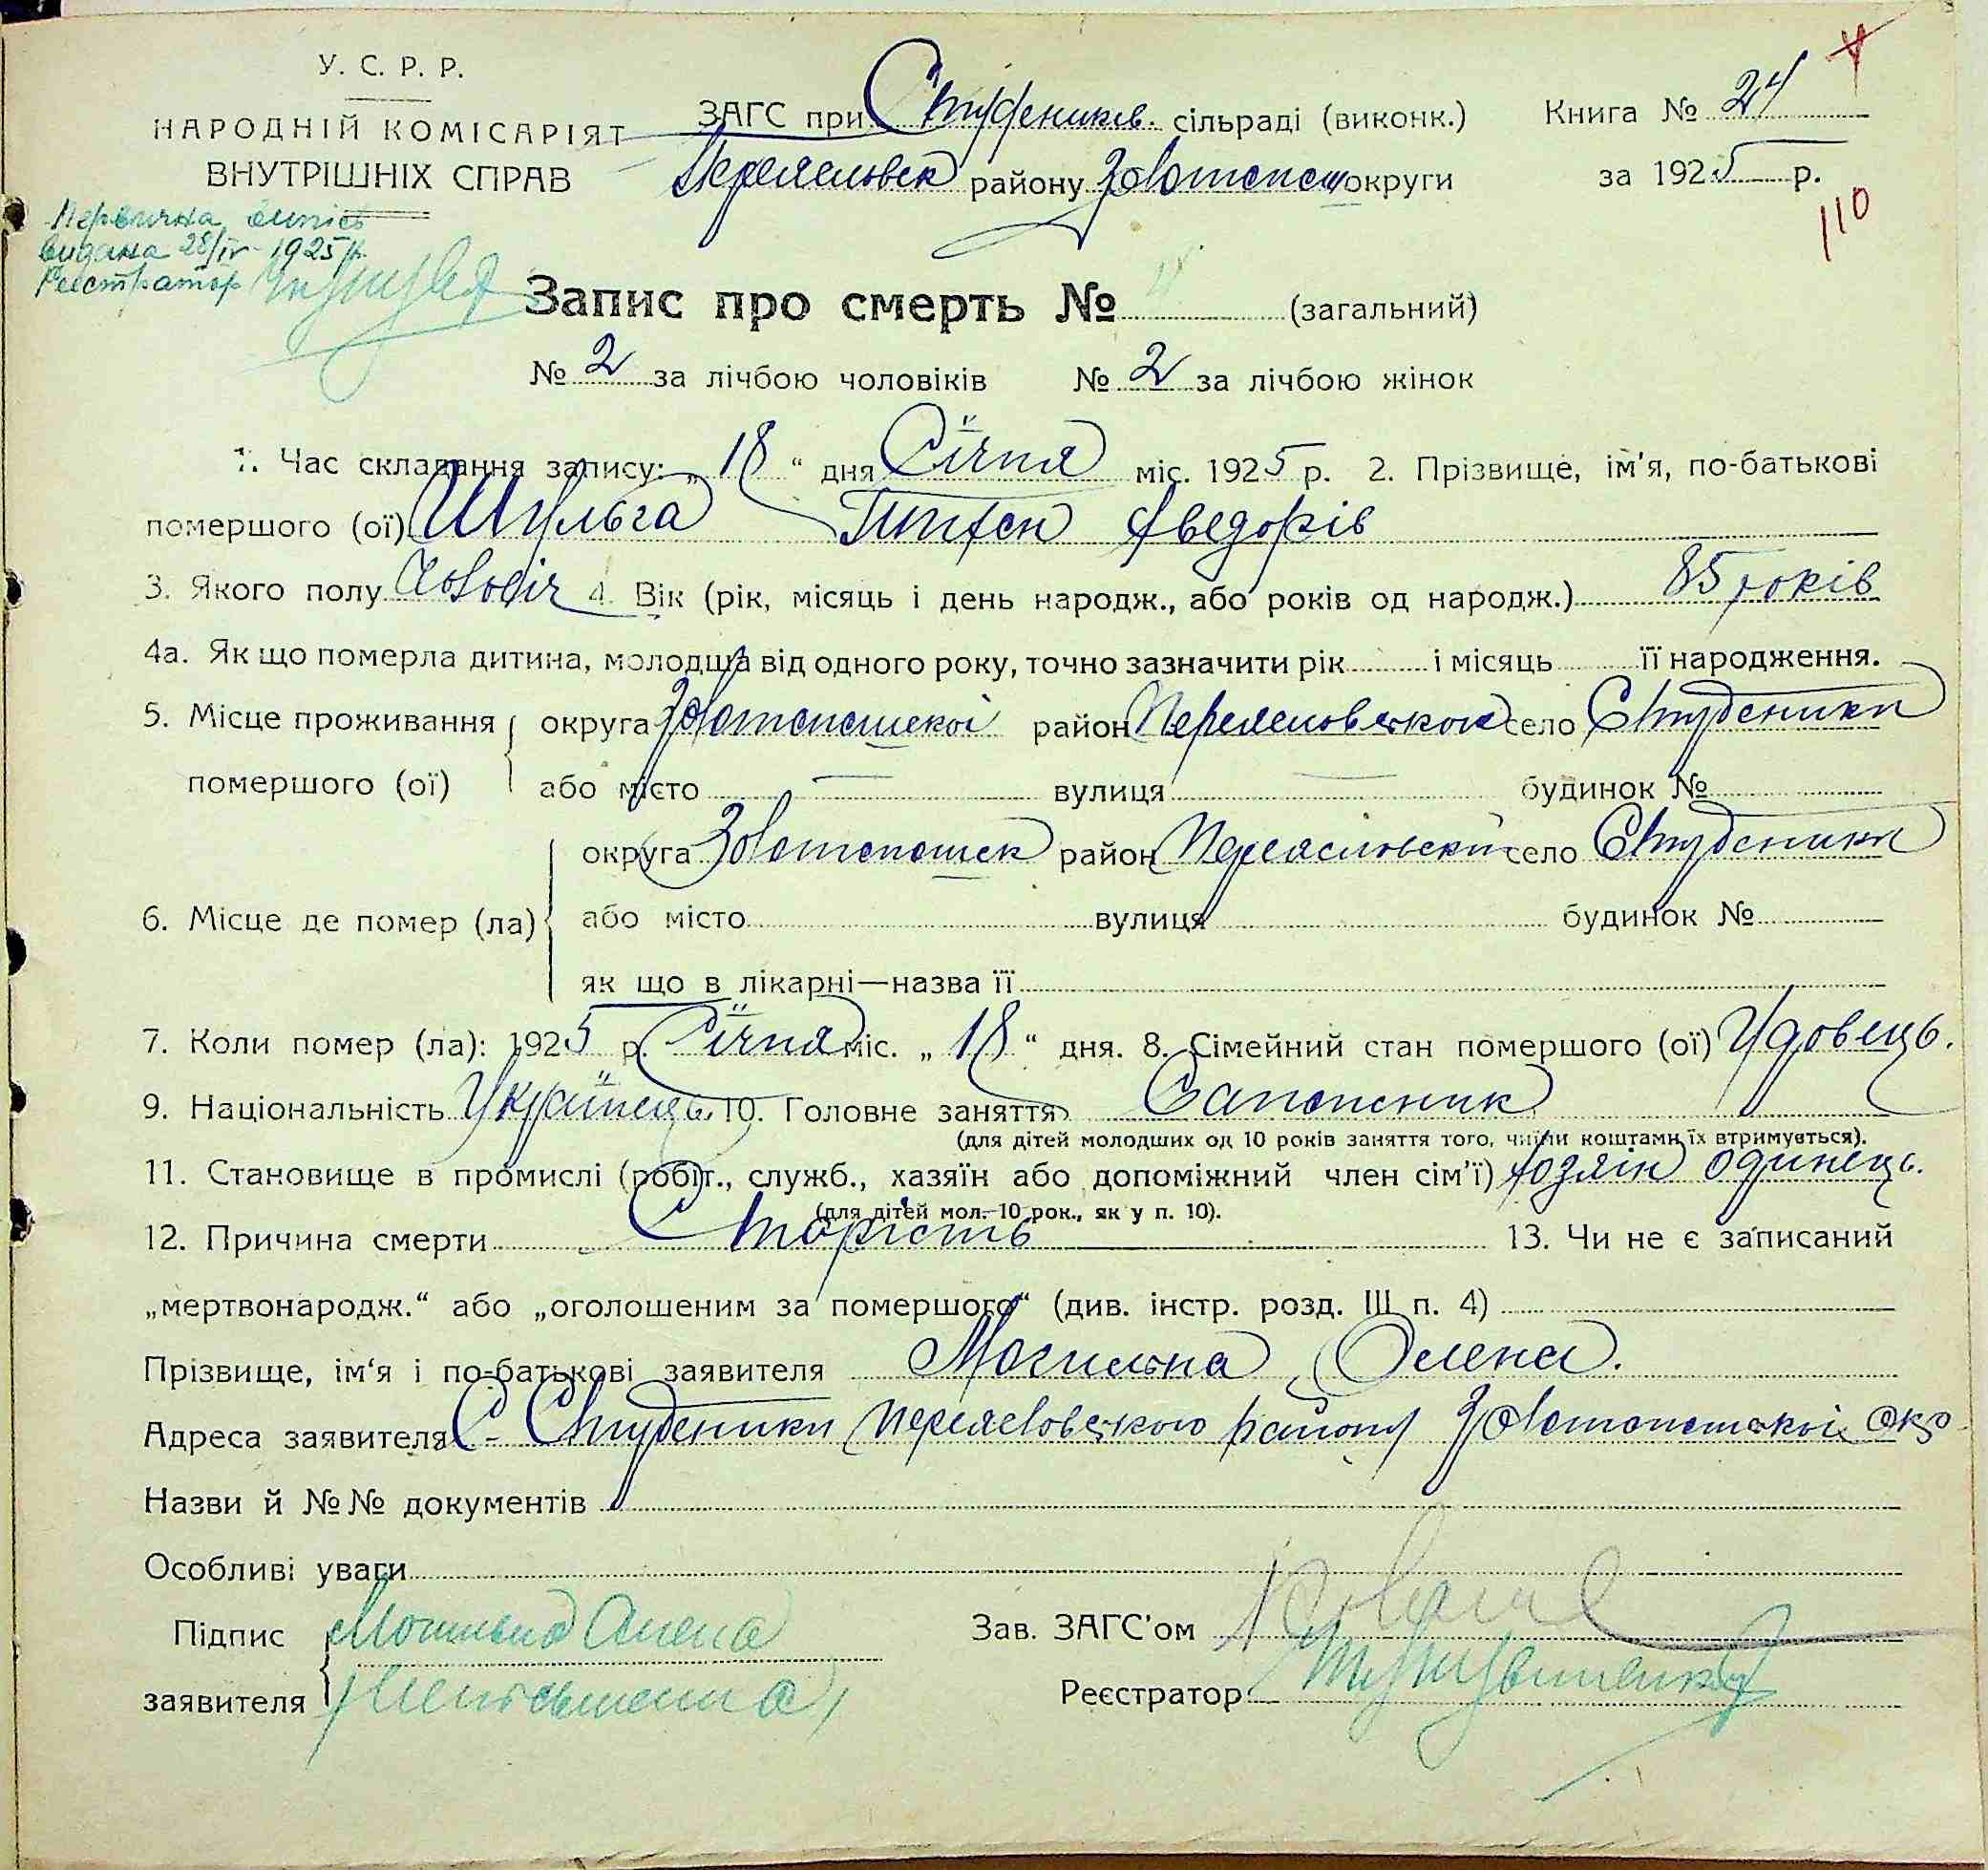 У. С. Р. Р.
НАРОДНІЙ КОМІСАРІЯТ
ВНУТРІШНІХ СПРАВ
ЗАГС при Студеників. сільраді (виконк.)
Переяславск району Золотонош округи
Книга № 24
за 1925 р.
110
Первична випись
видана 28/IV 1925 р.
Реєстратор
Запис про смерть № 4 (загальний)
№ 2 за лічбою чоловіків № 2 за лічбою жінок
1. Час складання запису: „18“ дня Січня міс. 1925 р. 2. Прізвище, ім'я, по-батькові
помершого (ої) Шульга Федорів
3. Якого полу Чоловіч 4. Вік (рік, місяць і день народж., або років од народж.) 85 років
4а. Як що померла дитина, молодша від одного року, точно зазначити рік і місяць її народження.
5. Місце проживання помершого (ої) округа Золотоношскої район Переясловського село Студеники
або місто — вулиця — будинок №
6. Місце де помер (ла) округа Золотоношск район Переясловский село Студеники
або місто вулиця будинок №
як що в лікарні—назва її
7. Коли помер (ла): 1925 р. Січня міс. „18“ дня. 8. Сімейний стан помершого (ої) Удовець.
9. Національність Українець 10. Головне заняття Сапожник
(для дітей молодших од 10 років заняття того, чиїми коштами їх втримується).
11. Становище в промислі (робіт., служб., хазяїн або допоміжний член сім'ї) хозяін одинець.
(для дітей мол. 10 рок., як у п. 10).
12. Причина смерти Старість 13. Чи не є записаний
„мертвонародж.“ або „оголошеним за помершого“ (див. інстр. розд. III п. 4)
Прізвище, ім'я і по-батькові заявителя Могильна Олена.
Адреса заявителя С. Студеники Переясловського району Золотоношської окр
Назви й №№ документів
Особливі уваги
Підпис заявителя Могильна Олена
Зав. ЗАГС'ом
Реєстратор